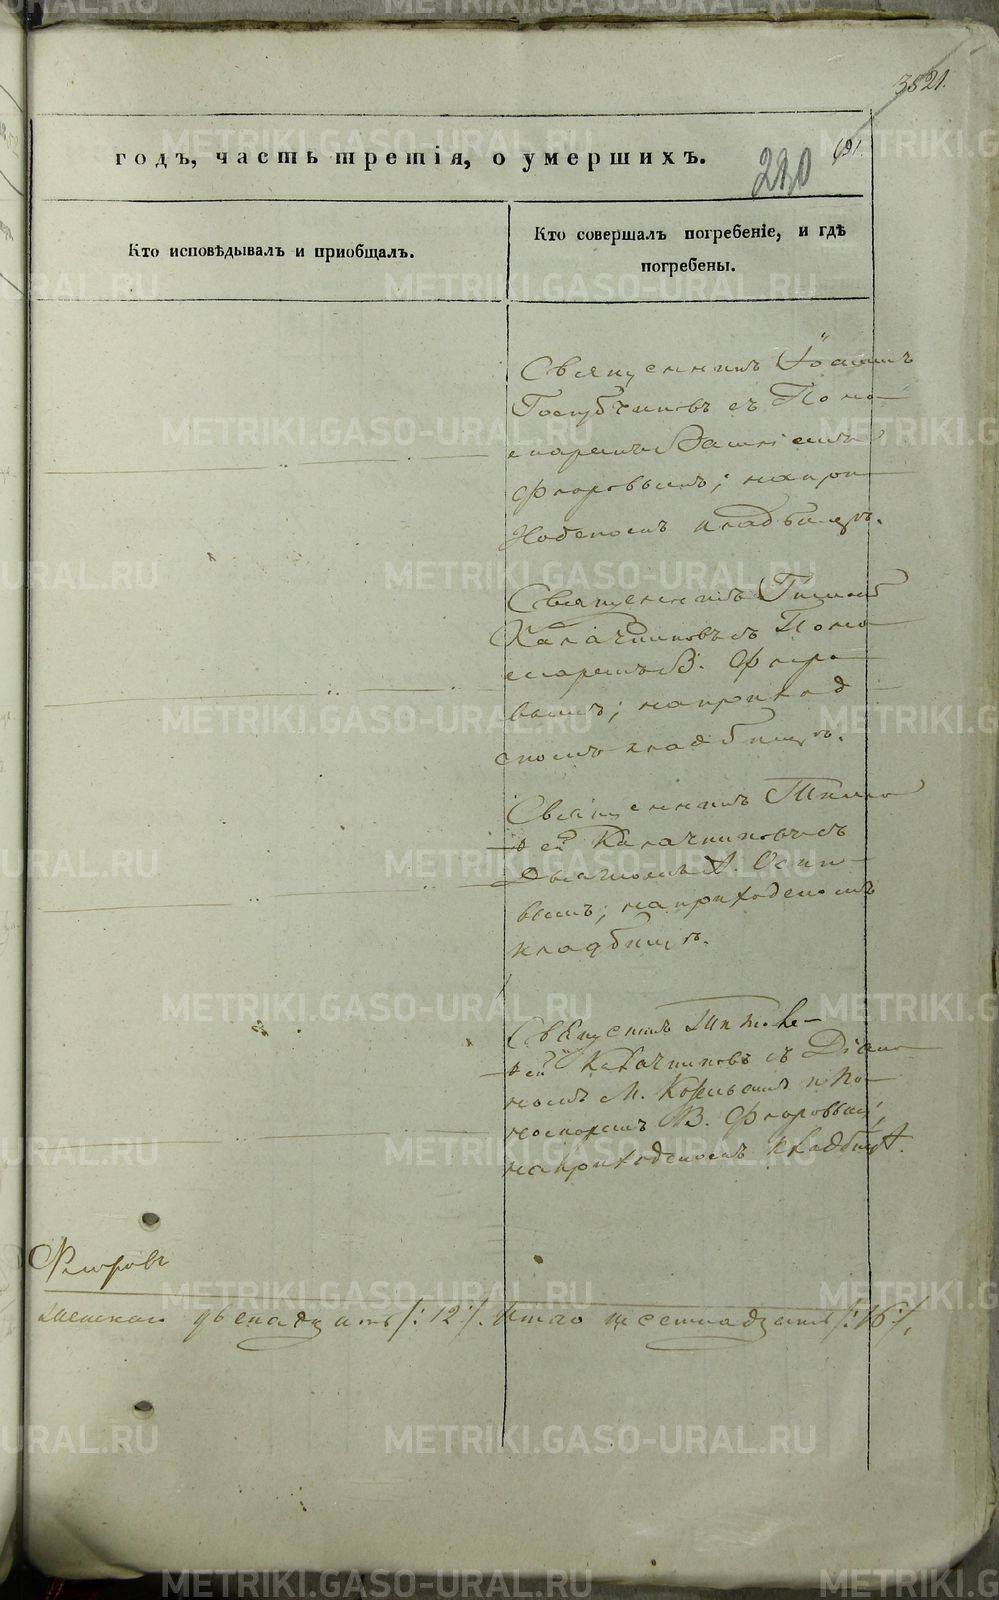 3821.
годъ, часть третія, о умершихъ.
230
691.
Кто исповѣдывалъ и пріобщалъ.
Кто совершалъ погребеніе, и гдѣ
погребены.
Священникъ Іоаннъ
съ Поно-
маремъ
Флоровымъ; на при-
ходскомъ кладбищѣ.
Священникъ Тимоѳей
Калачниковъ съ Поно-
маремъ В. Флоро-
вымъ; на приход
скомъ кладбищѣ.
Священникъ Тимо-
ѳей Калачниковъ съ
Дьячкомъ А. Осипо-
вымъ; на приходскомъ
кладбищѣ.
Священникъ Тимо-
ѳей Калачниковъ съ Діако-
номъ М. и По-
номаремъ В. Флоровымъ;
на приходскомъ кладбищѣ.
Флоровъ
женскаго двенадцать /:12:/. Итого шестнадцать /:16:/.
METRIKI.GASO-URAL.RU